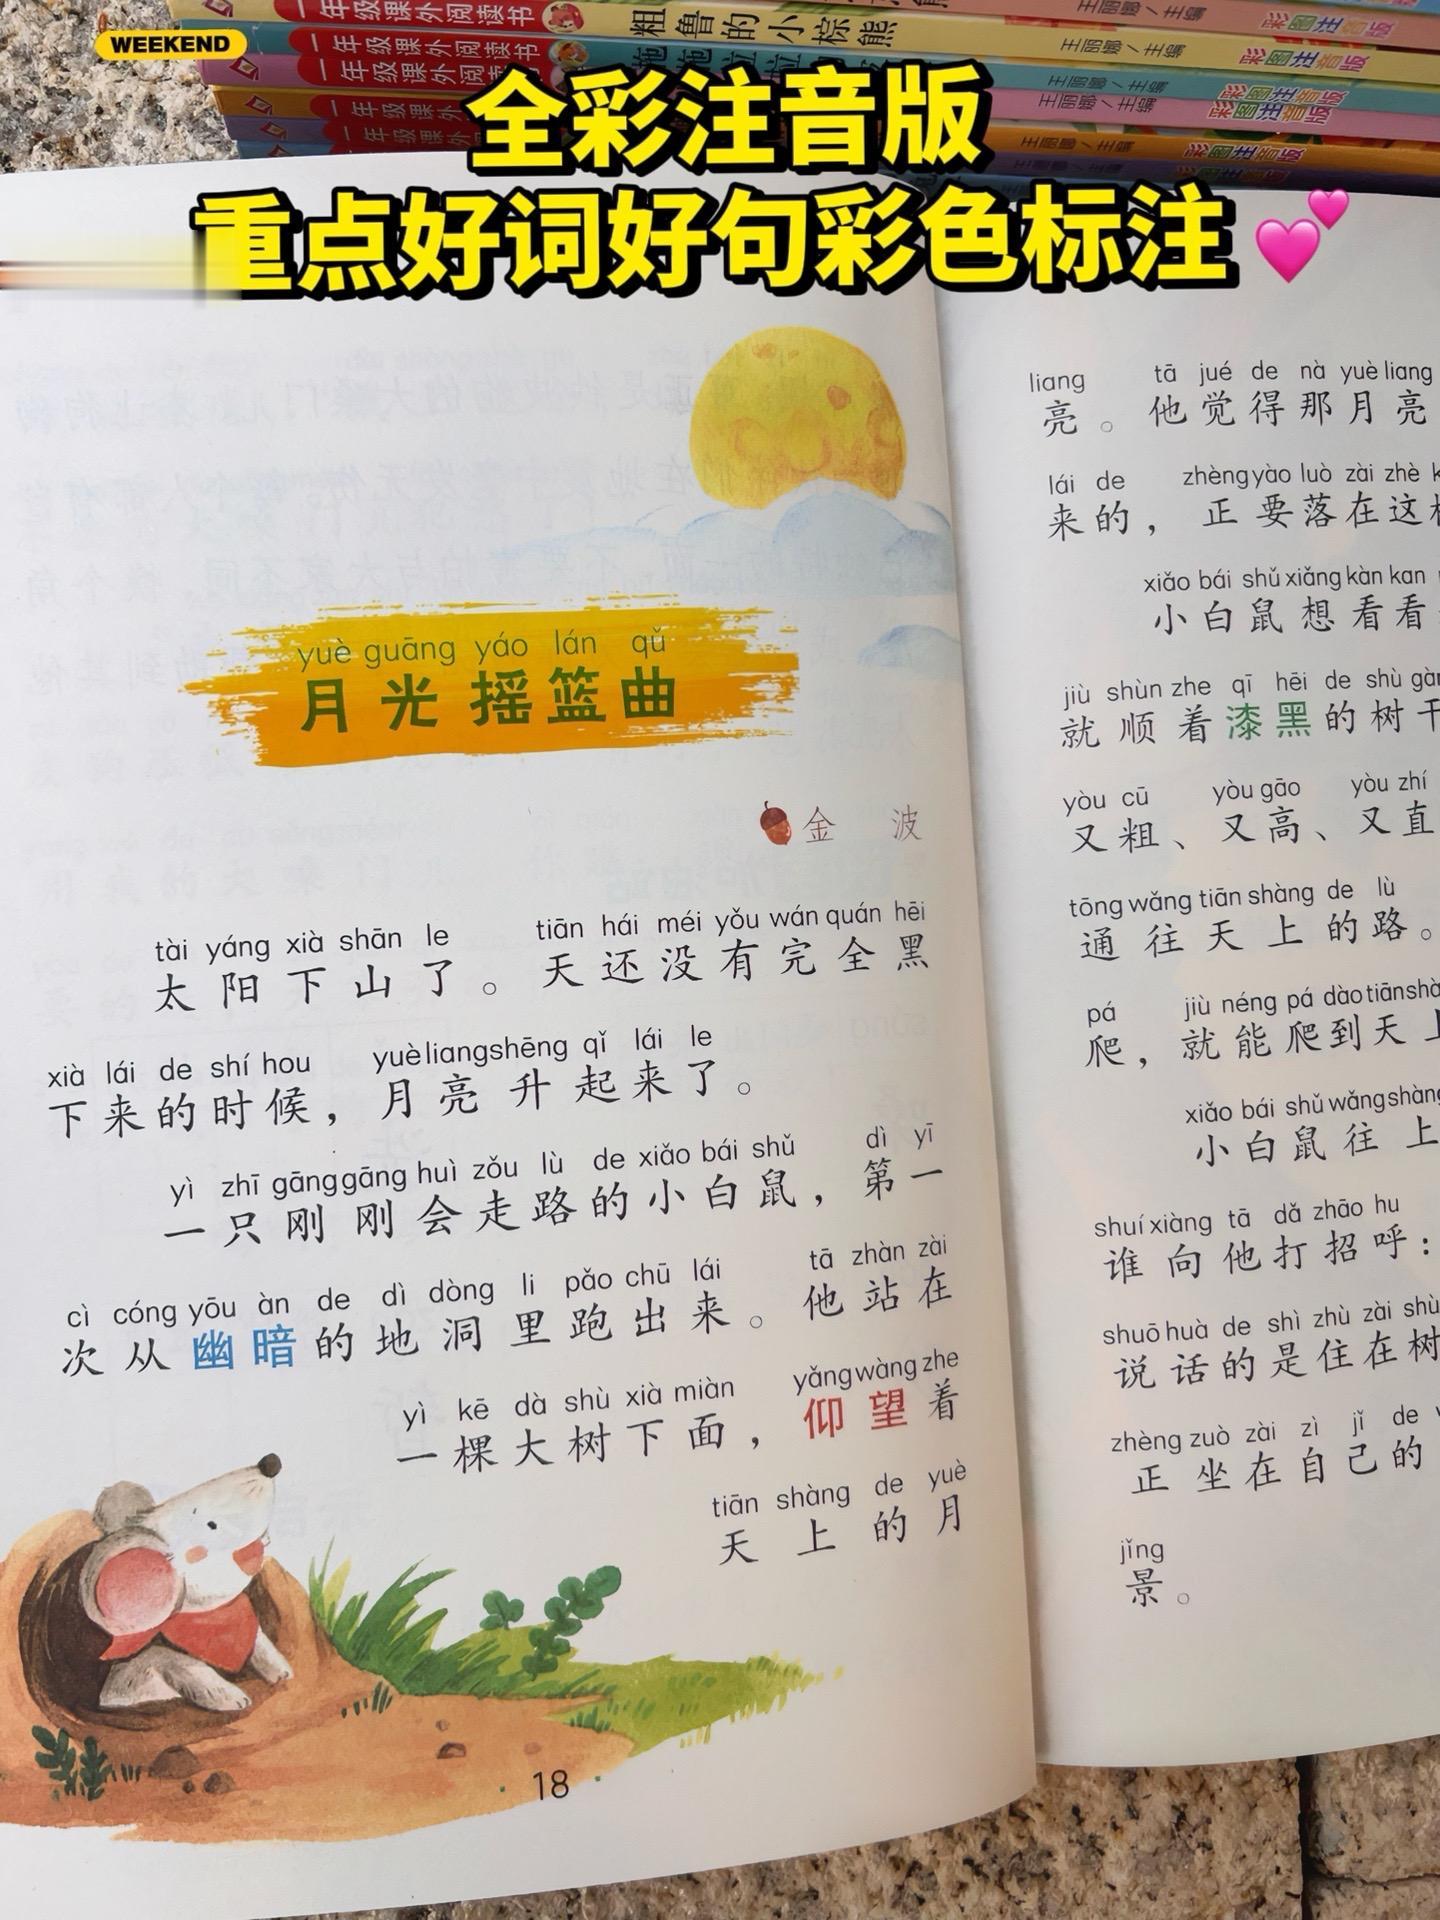 一年级课外阅读书
粗鲁的小棕熊
王丽娜/主编
彩图注音版
一年级课外阅读书
王丽娜/主编
彩图注音版
一年级课外阅读书
王丽娜/主编
彩图注音版
一年级课外阅读书
王丽娜/主编
彩图注音版
一年级课外阅读书
王丽娜/主编
彩图注音版
WEEKEND
全彩注音版
重点好词好句彩色标注💕
yuè guāng yáo lán qǔ
月光摇篮曲
金 波
tài yáng xià shān le tiān hái méi yǒu wán quán hēi
太阳下山了。天还没有完全黑
xià lái de shí hou yuè liang shēng qǐ lái le
下来的时候，月亮升起来了。
yì zhī gāng gāng huì zǒu lù de xiǎo bái shǔ dì yī
一只刚刚会走路的小白鼠，第一
cì cóng yōu àn de dì dòng li pǎo chū lái tā zhàn zài
次从幽暗的地洞里跑出来。他站在
yì kē dà shù xià miàn yǎng wàng zhe
一棵大树下面，仰望着
tiān shàng de yuè
天上的月
18
liang tā jué de nà yuè liang
亮。他觉得那月亮
lái de zhèng yào luò zài zhè
来的，正要落在这
xiǎo bái shǔ xiǎng kàn kan
小白鼠想看看
jiù shùn zhe qī hēi de shù gàn
就顺着漆黑的树干
yòu cū yòu gāo yòu zhí
又粗、又高、又直
tōng wǎng tiān shàng de lù
通往天上的路。
pá jiù néng pá dào tiān shàng
爬，就能爬到天上
xiǎo bái shǔ wǎng shàng
小白鼠往上
shuí xiàng tā dǎ zhāo hu
谁向他打招呼：
shuō huà de shì zhù zài shù
说话的是住在树
zhèng zuò zài zì jǐ de
正坐在自己的
jǐng
景。